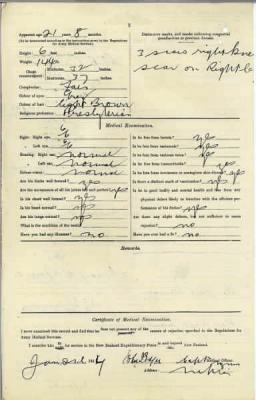 2
Apparent age 21 years 8 months
(To be determined according to the instructions given in the Regulations for Army Medical Services.)
Distinctive marks, and marks indicating congenital peculiarities or previous disease.
Height: 6 feet inches
3 scars right knee
Weight: 144
scar on Right
Chest measurement: Minimum: 32 inches
Maximum: 37 inches
Complexion: Fair
Colour of eyes: Grey
Colour of hair: Light Brown
Religious Profession: Presbyterian
Medical Examination.
Sight: Right eye 6/6
Left eye 6/6
Hearing: Right ear normal
Left ear normal
Colour vision normal
Are his limbs well formed? yes
Are the movements of all his joints full and perfect? yes
Is his chest well formed? yes
Is his heart normal? yes
Are his lungs normal? yes
What is the condition of his teeth?
Have you had any illnesses? no
Is he free from hernia? yes
Is he free from varicocele? yes
Is he free from varicose veins? yes
Is he free from hæmorrhoids? yes
Is he free from inveterate or contagious skin disease? yes
Is there a distinct mark of vaccination? yes
Is he in good bodily and mental health and free from any physical defect likely to interfere with the efficient performance of his duties? yes
Are there any slight defects, but not sufficient to cause rejection? no
Have you ever had a fit? no
Remarks.
Certificate of Medical Examination.
I have examined this recruit and find that he does not present any of the causes of rejection specified in the Regulations for Army Medical Services.
I consider him fit for service in the New Zealand Expeditionary Force